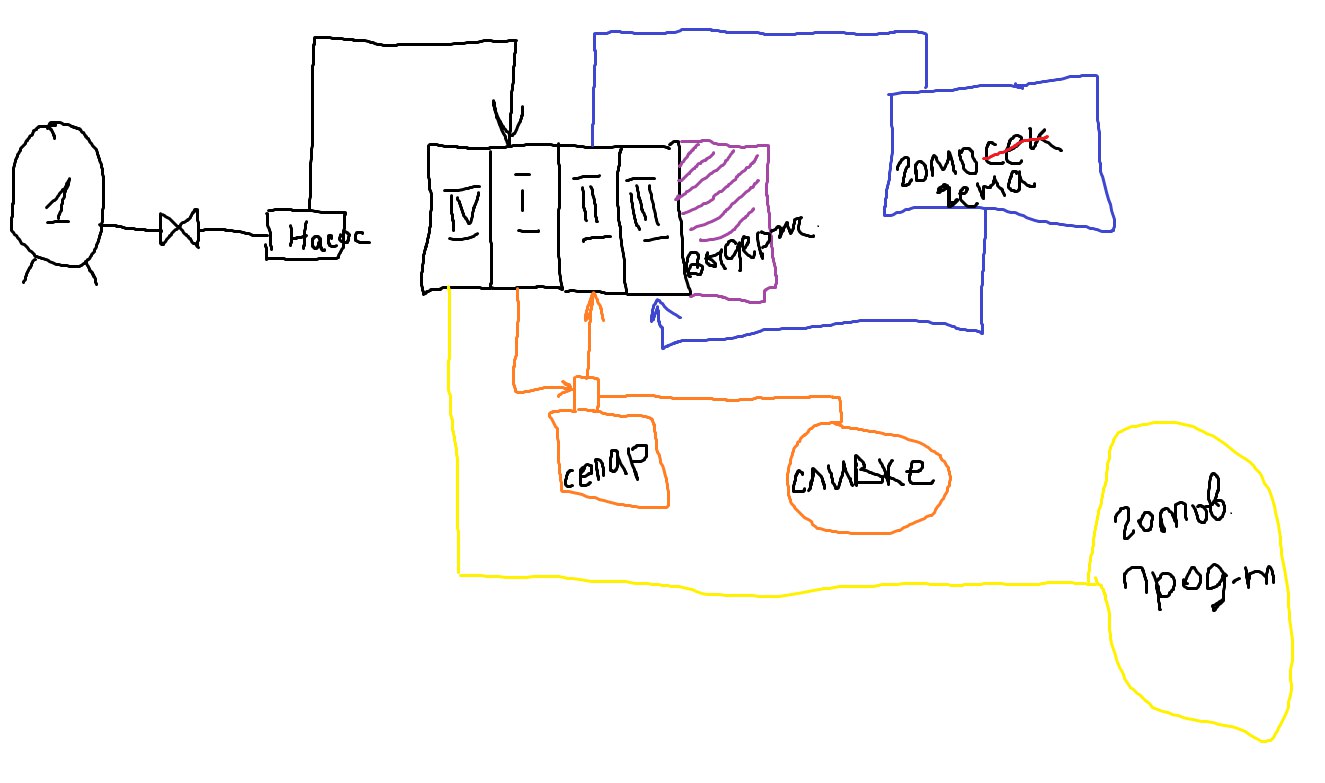 1
Насос
IV I II III
выдерж.
гомосек
гена
сепар
сливке
готов.
прод-т